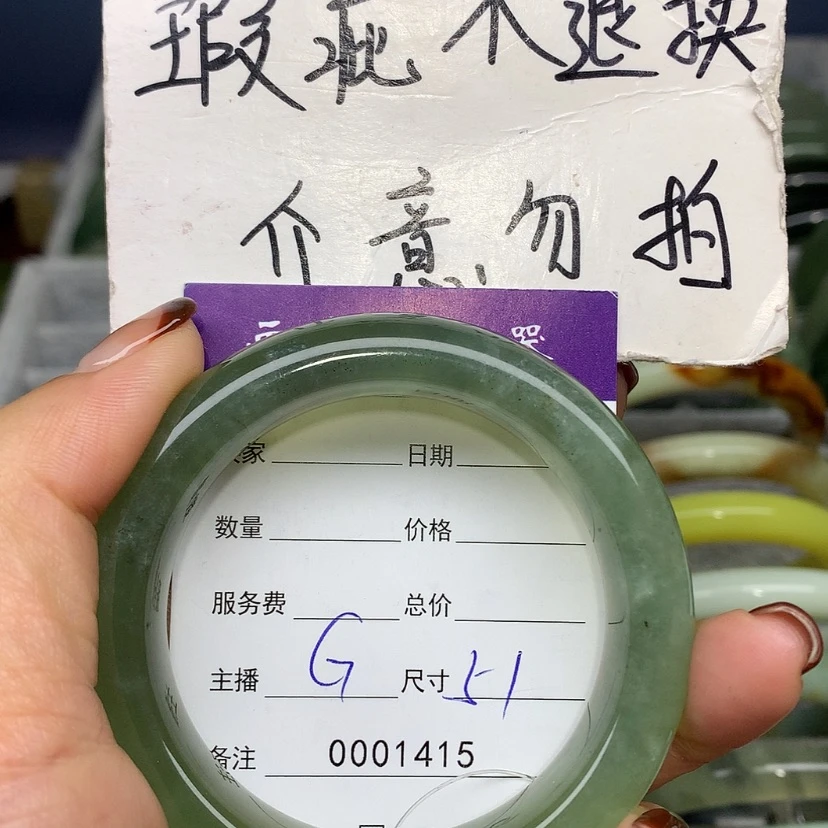 瑕疵不退换
介意勿拍
家 日期
数量 价格
服务费 总价
主播 G 尺寸 51
备注 0001415